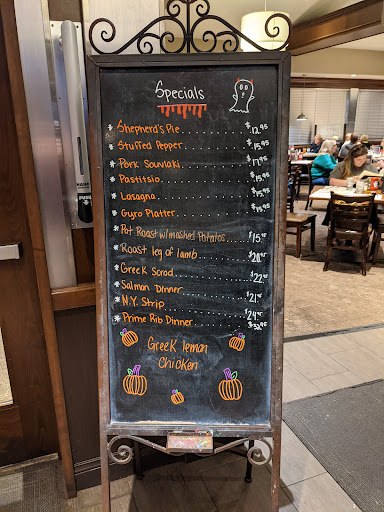 Specials
* Shepherd's Pie $12.95
* Stuffed Pepper $15.95
* Pork Souvlaki $17.95
* Pastitsio $15.95
* Lasagna $15.95
* Gyro Platter $15.95
* Pot Roast w/mashed Potatoe $15.95
* Roast leg of lamb $20.95
* Greek Sorod $22.95
* Salmon Dinner $21.95
* N.Y. Strip $24.95
* Prime Rib Dinner
Greek lemon
Chicken